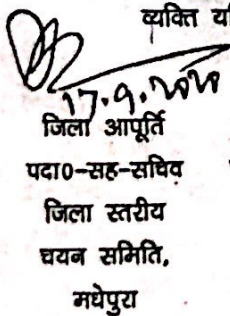 व्यक्ति
17.9.2020
जिला आपूर्ति
पदा०-सह-सचिव
जिला स्तरीय
चयन समिति,
मधेपुरा